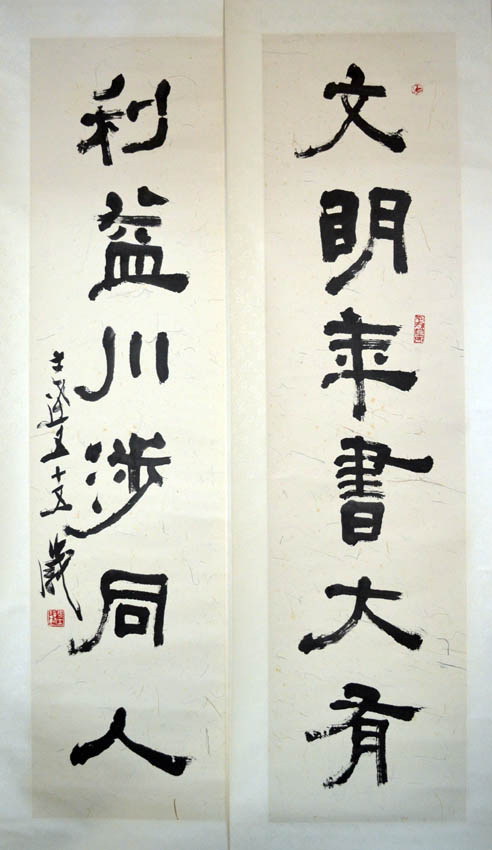 文明年書大有
利益川涉同人
士澍五十五歲